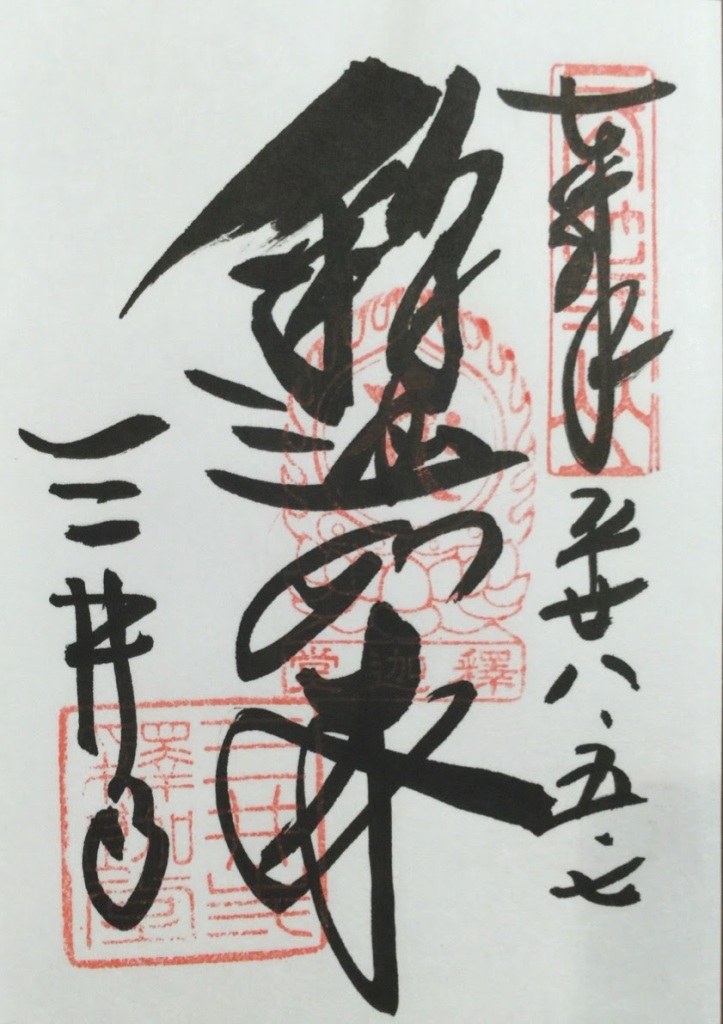 奉拝
平廿八、五、七
釋迦如来
釋迦堂
三井寺
三井寺
釋迦堂